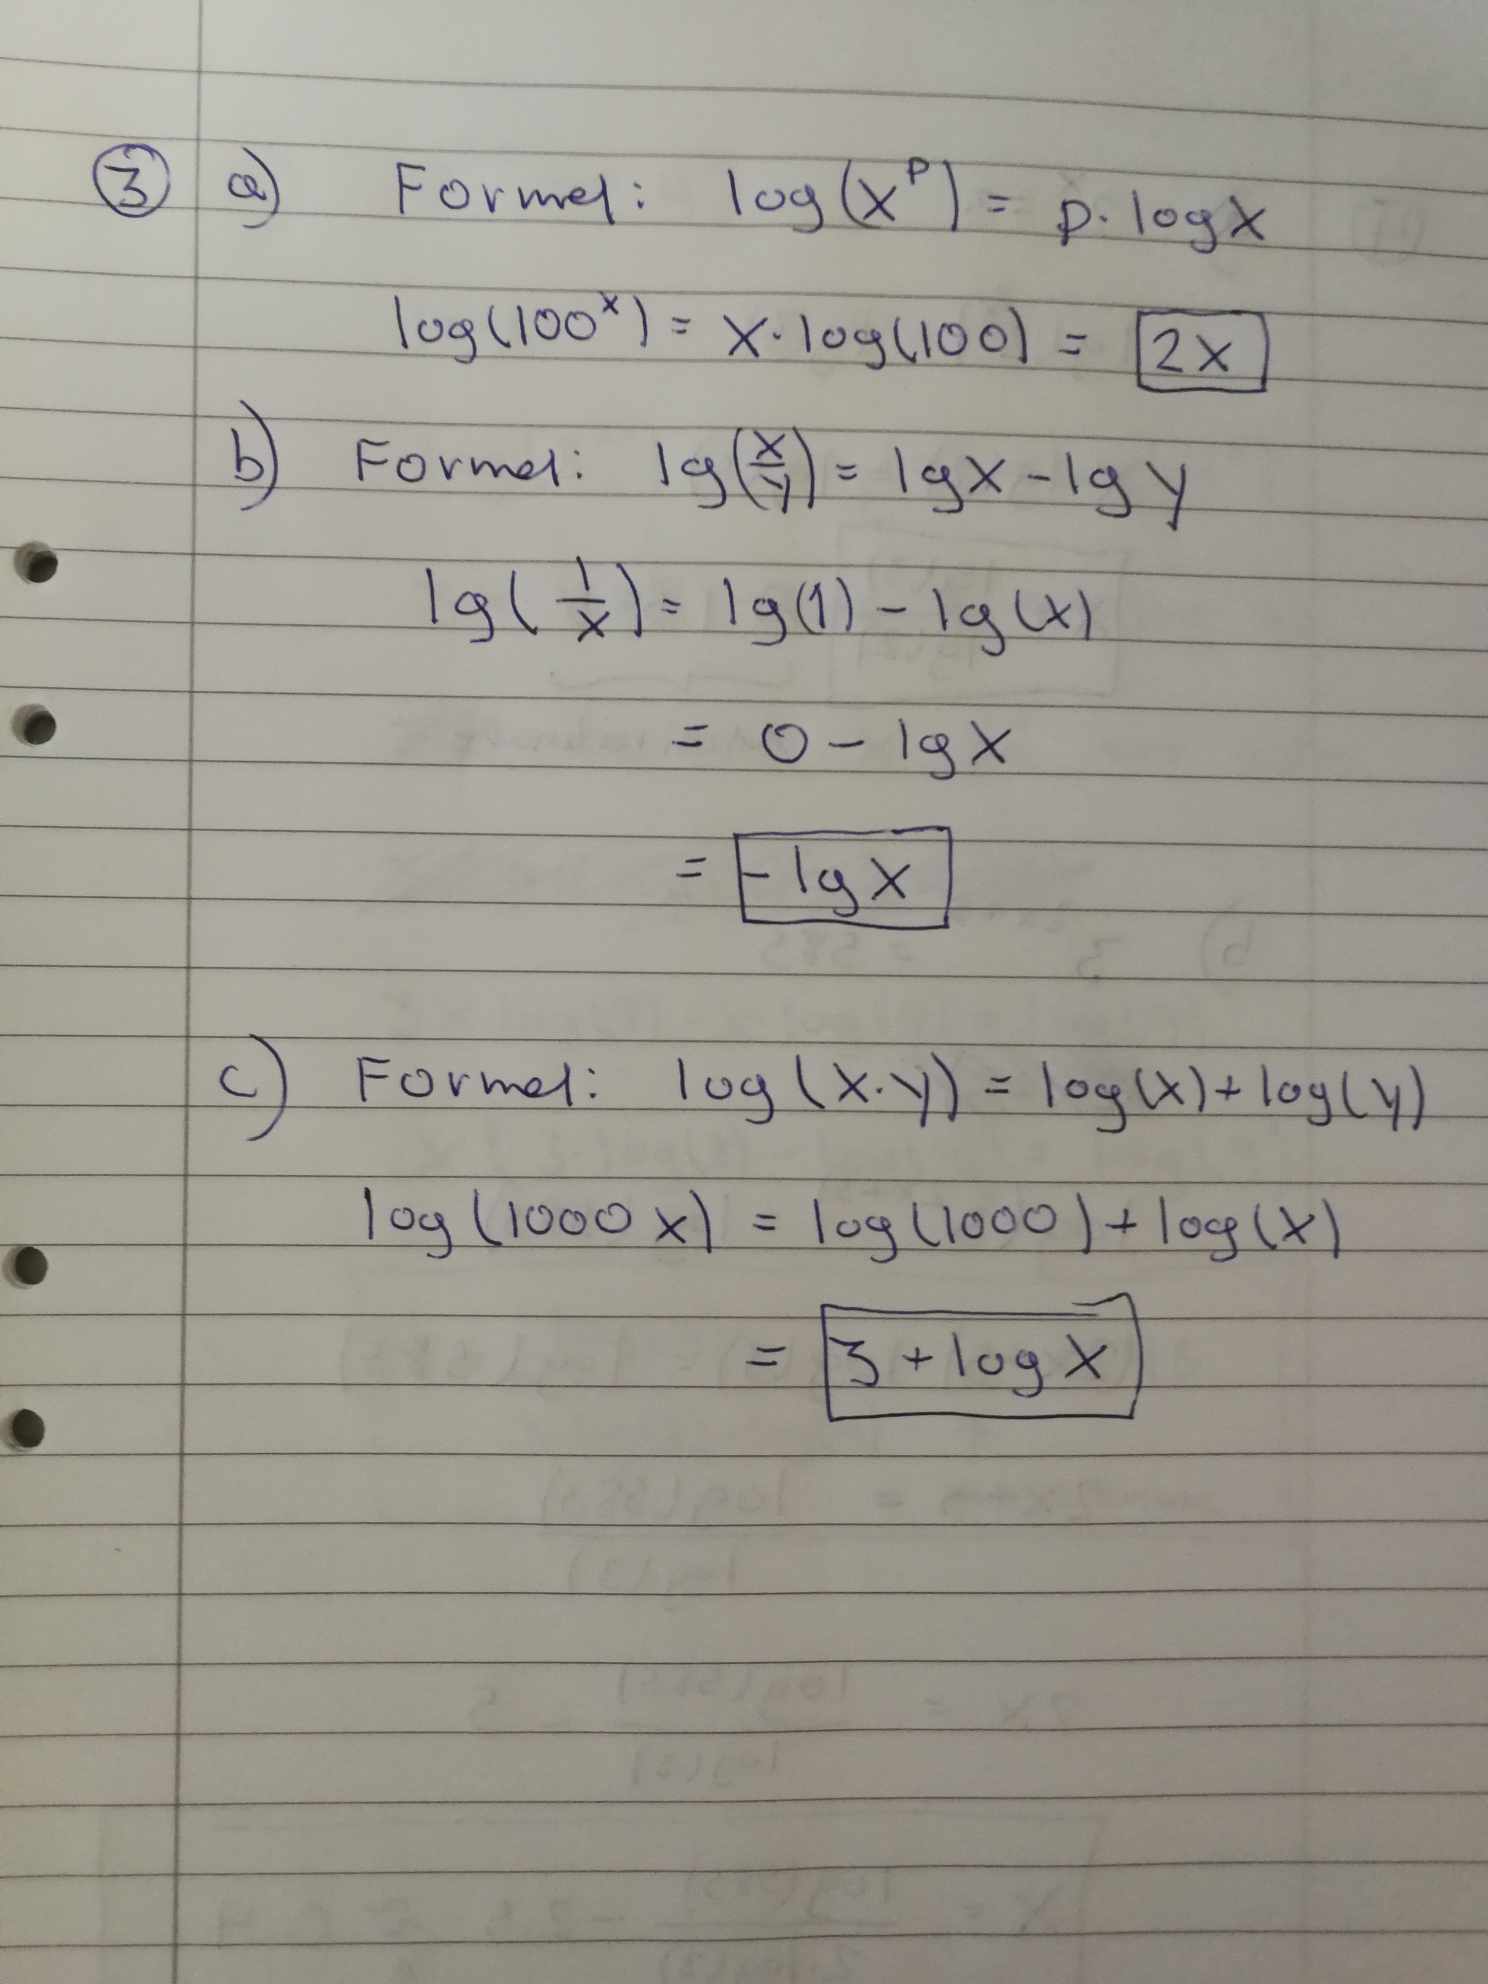 ③ a) Formel: log(x^p) = p · log x
log(100^x) = x · log(100) = 2x
b) Formel: lg(x/y) = lg x - lg y
lg(1/x) = lg(1) - lg(x)
= 0 - lg x
= -lg x
c) Formel: log(x·y) = log(x) + log(y)
log(1000 x) = log(1000) + log(x)
= 3 + log x